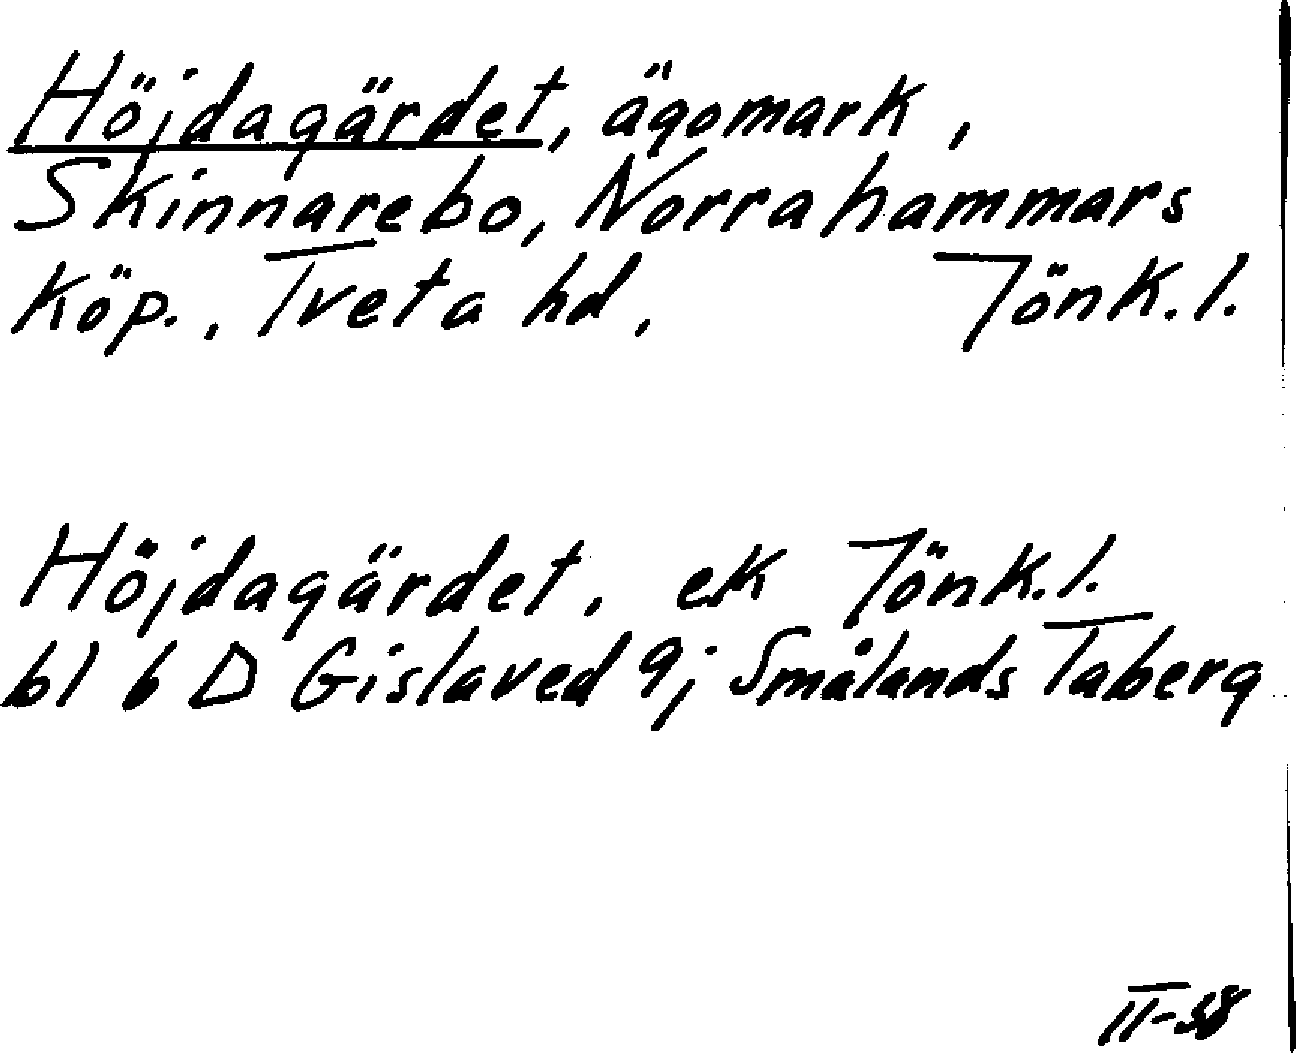 Höjdagärdet, ägomark,
Skinnarebo, Norrahammars
köp., Tveta hd, Jönk.l.
Höjdagärdet, ek Jönk.l.
bl 6 D Gislaved 9j Smålands Taberg
II-58